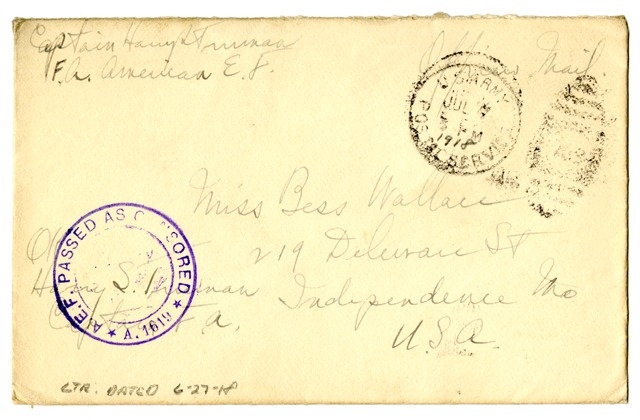 Captain Harry S Truman
F.A. American E.F.
Officers Mail.
U.S. ARMY
JUL
PM
1918
POSTAL SERVICE
Miss Bess Wallace
219 Deluwan St
Independence Mo
U.S.A.
A.E.F. PASSED AS CENSORED
A. 1619
Harry S. Truman
Capt F.A.
LTR. DATED 6-27-18